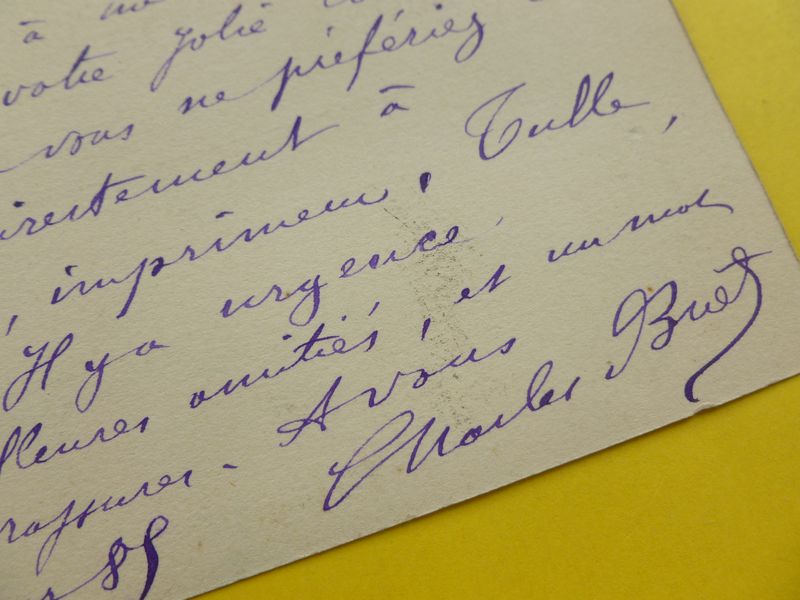 à
votre jolie
vous ne préfériez
directement à Tulle,
, imprimeur,
Il y a urgence.
meilleures amitiés, et un mot
rassurer. A vous
Charles Buet
85